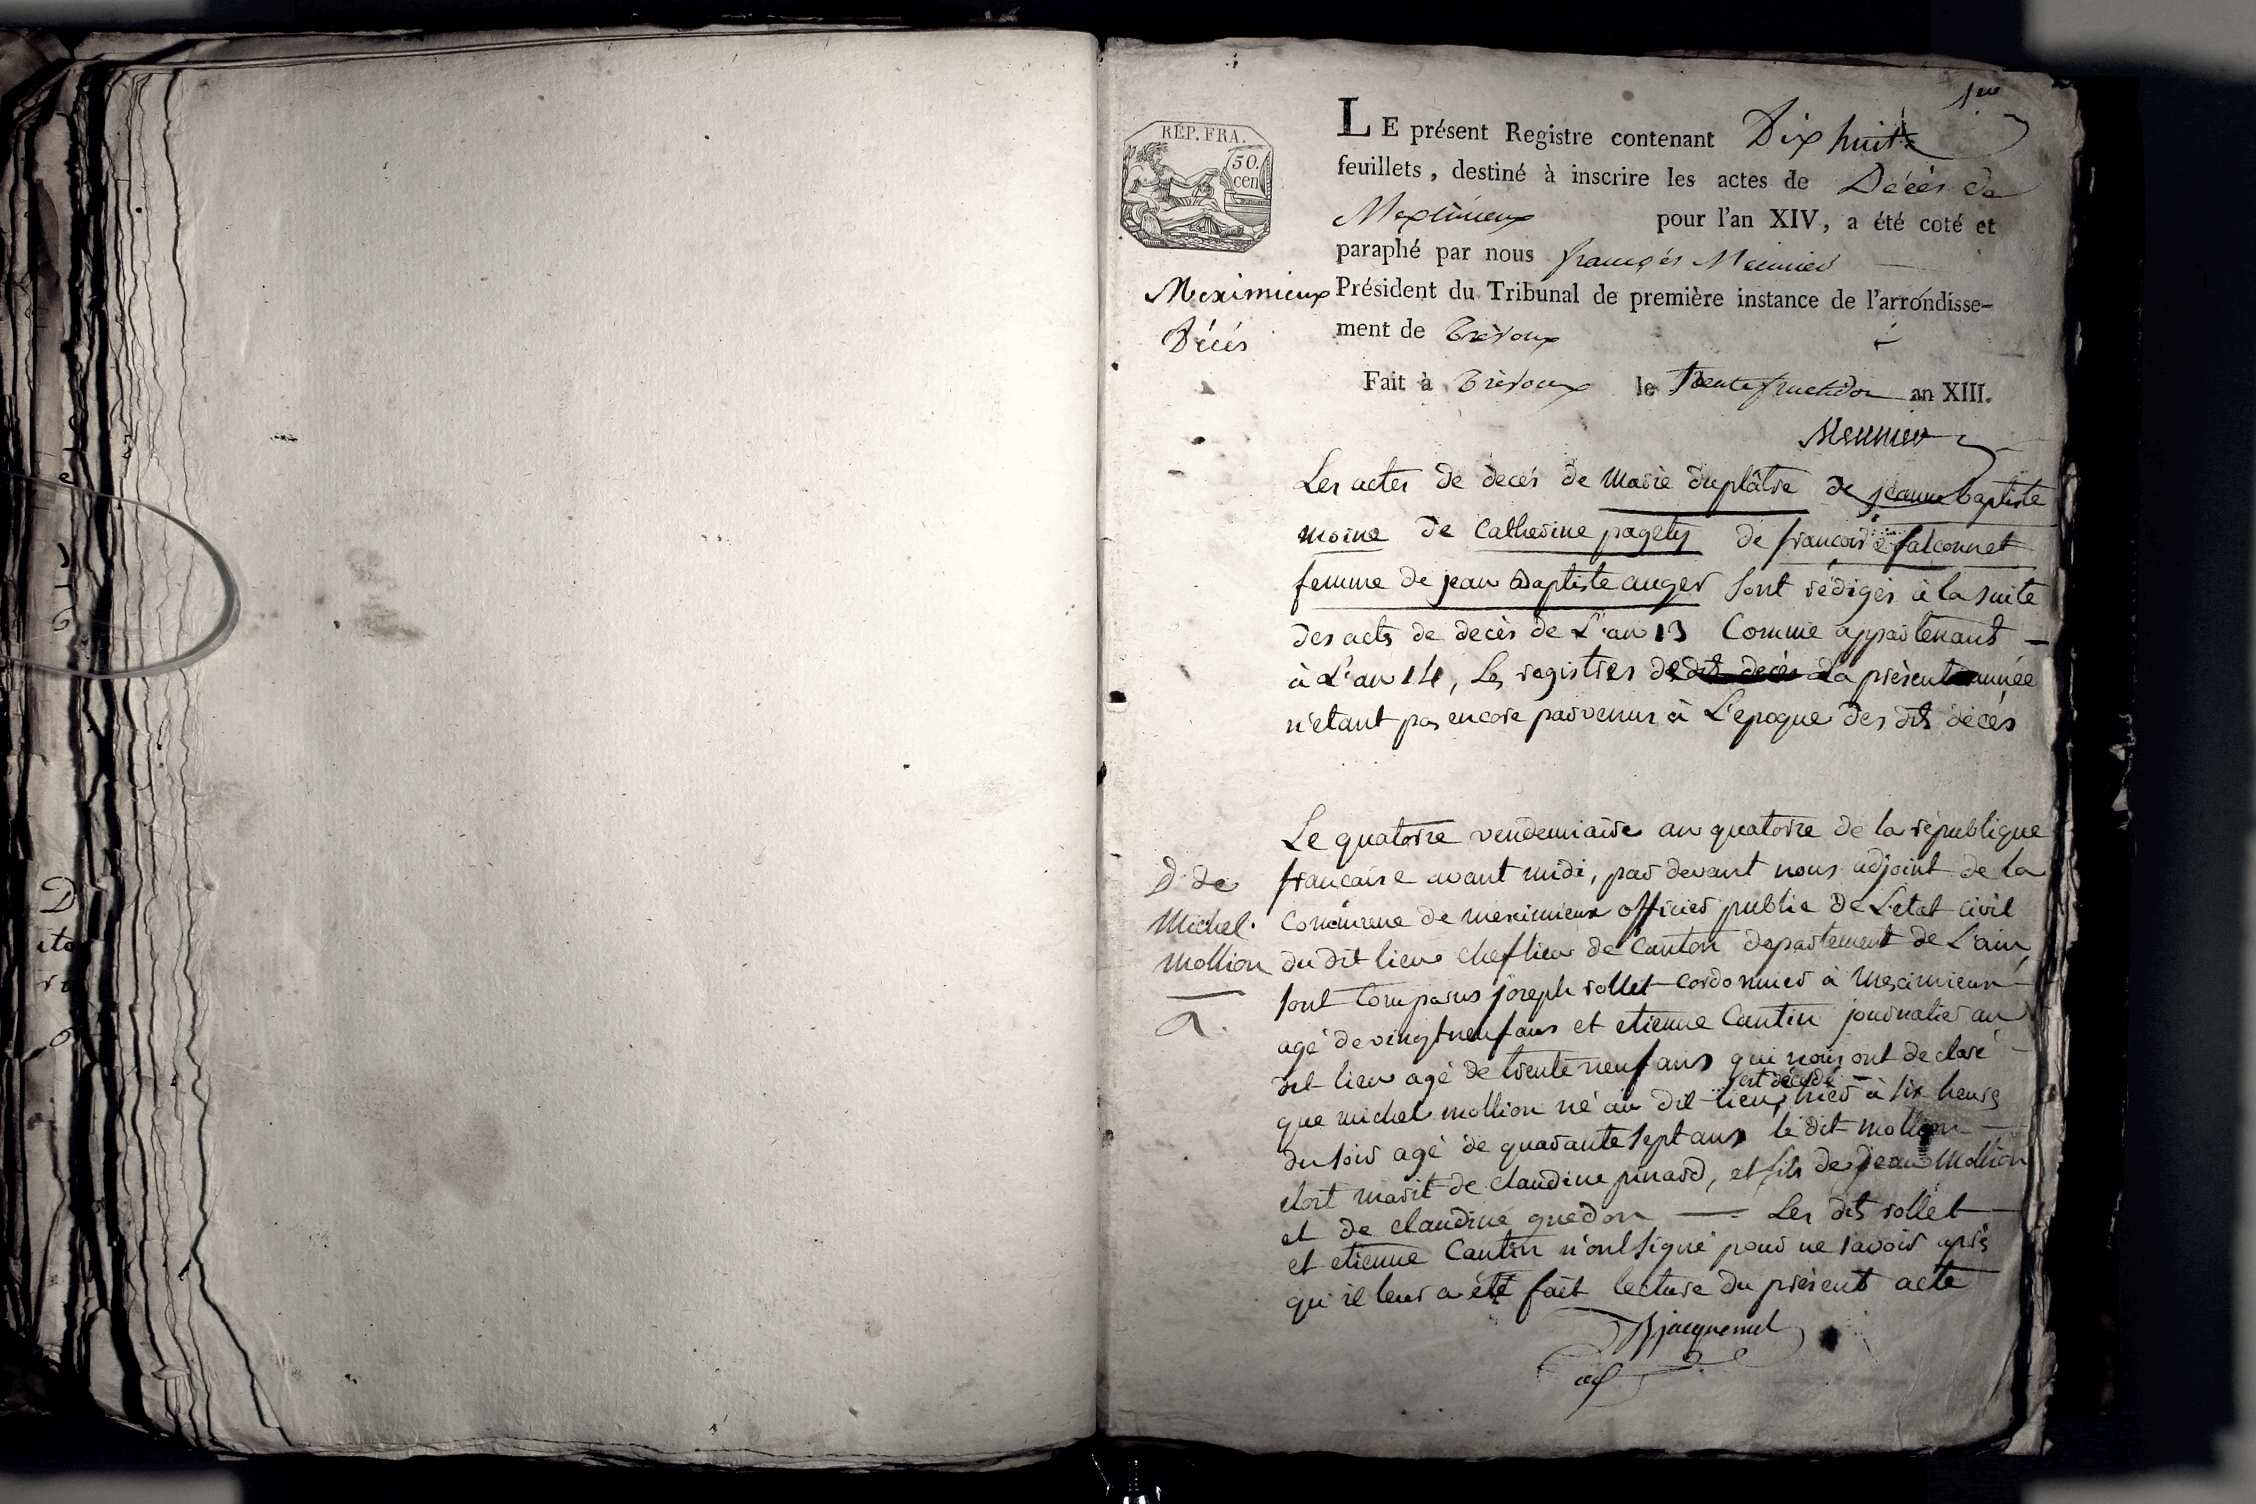 1ere
RÉP. FRA.
50.
cen
LE présent Registre contenant Dix huit
feuillets, destiné à inscrire les actes de Décès de
Meximieux pour l'an XIV, a été coté et
paraphé par nous françois Meunier
Meximieux
Décés
Président du Tribunal de première instance de l'arrondisse-
ment de Trévoux
Fait à Trévoux le Trente fructidor an XIII.
Meunier
Les actes de decés de marie duplâtre de jeanne baptiste
moine de Catherine pagety de francoise falconnet
femme de jean Baptiste auger sont rédigés à la suite
des acts de decès de L'an 13 Comme appartenant
à L'an 14, Les registres de La présent année
n'etant pas encore parvenus à L'epoque des dits décés
D. de
Michel.
Mollion
a.
Le quatorze vendemiaire an quatorze de la république
francaise avant midi, par devant nous adjoint de la
Commune de meximieux officier public de L'etat civil
du dit lieu chef lieu de Canton departement de L'ain
sont Comparus joseph rollet cordonnier à meximieux
agé de vingt neuf ans et etienne Cantin journalier au
dit lieu agé de trente neuf ans qui nous ont declaré
que michel mollion né au dit lieu, est décédé hier à six heures
du soir agé de quarante sept ans le dit mollion
etoit marit de claudine pinard, et fils de jean Mollion
et de claudine guedon — Les dits rollet
et etienne Cantin n'ont signé pour ne savoir après
qu'il leur a été fait lecture du présent acte
Bjacquemet
adj